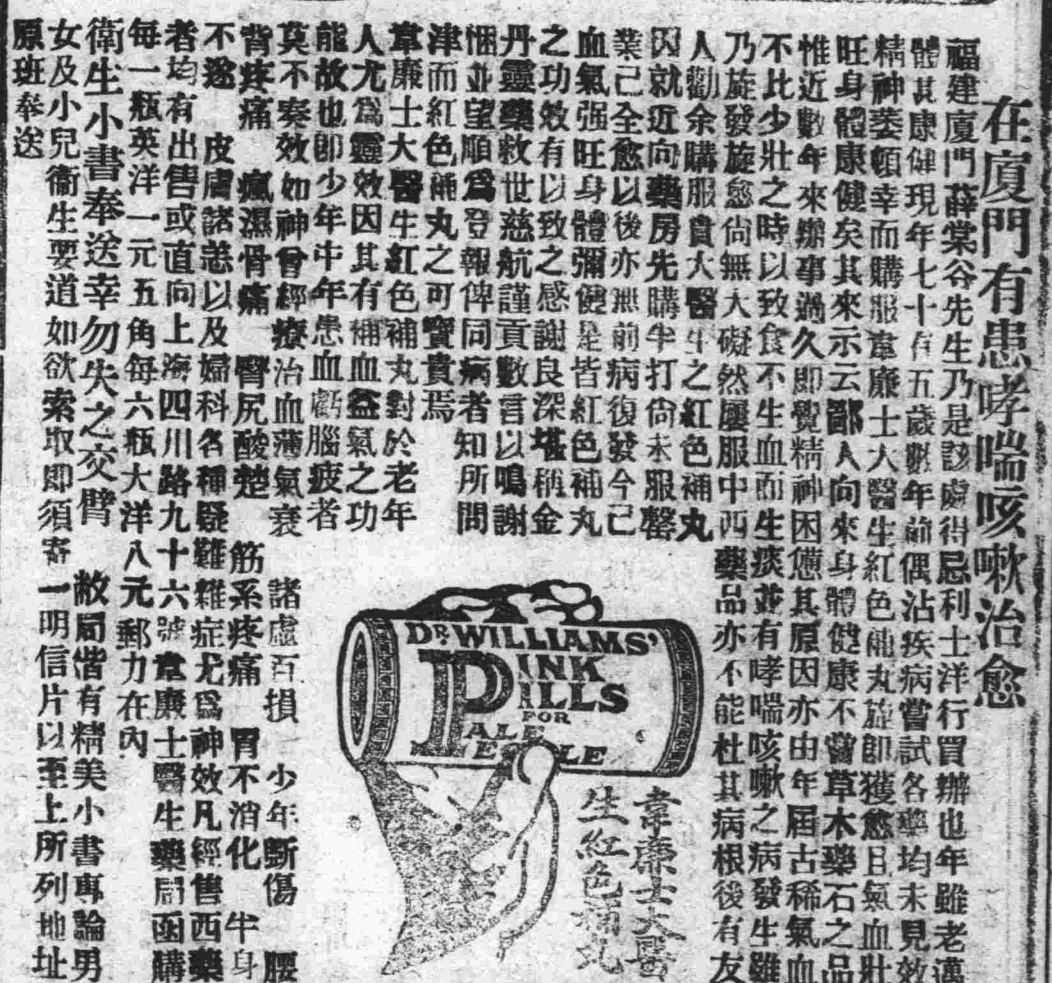 在廈門有患哮喘咳嗽治愈
福建廈門薛棠谷先生乃是該處得忌利士洋行買辦也年雖老邁
體甚康健現年七十有五歲數年前偶沾疾病嘗試各藥均未見效
精神萎頓幸而購服韋廉士大醫生紅色補丸旋即獲愈且氣血壯
旺身體康健矣其來示云鄙人向來身體健康不嘗草木藥石之品
惟近數年來辦事過久即覺精神困憊其原因亦由年屆古稀氣血
不比少壯之時以致食不生血而生痰並有哮喘咳嗽之病發生雖
乃旋發旋愈尙無大礙然屢服中西藥品亦不能杜其病根後有友
人勸余購服貴大醫生之紅色補丸
因就近向藥房先購半打尙未服罄
業已全愈以後亦無前病復發今已
血氣强旺身體彌健是皆紅色補丸
之功效有以致之感謝良深堪稱金
丹靈藥救世慈航謹貢數言以鳴謝
悃並望順爲登報俾同病者知所問
津而紅色補丸之可寶貴焉
韋廉士大醫生紅色補丸對於老年
人尤爲靈效因其有補血益氣之功
能故也即少年中年患血虧腦疲者
莫不奏效如神曾經療治血薄氣衰
諸虛百損 少年斲傷 腰
背疼痛 瘋濕骨痛 腎尻酸楚 筋系疼痛 胃不消化 半身
不遂 皮膚諸恙以及婦科各種疑難雜症尤爲神效凡經售西藥
者均有出售或直向上海四川路九十六號韋廉士醫生藥局函購
每一瓶英洋一元五角每六瓶大洋八元郵力在內
衛生小書奉送幸勿失之交臂
敝局備有精美小書專論男
女及小兒衛生要道如欲索取即須寄一明信片以至上所列地址
原班奉送
DR WILLIAMS'
PINK
PILLS
FOR
PALE
PEOPLE
韋廉士大醫
生紅色補丸